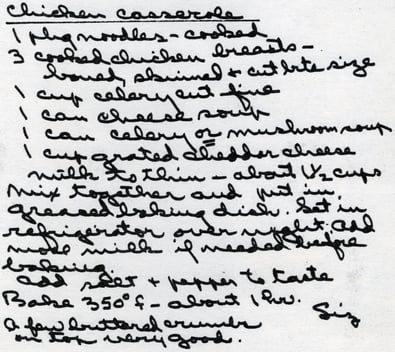 Chicken Casserole
1 pkg noodles - cooked
3 cooked chicken breasts -
boned, skinned + cut bite size
1 cup celery cut fine
1 can cheese soup
1 can celery or mushroom soup
1 cup grated cheddar cheese
milk to thin - about 1 1/2 cups
Mix together and put in
greased baking dish. Set in
refrigerator over night. Add
more milk if needed before
baking.
add salt + pepper to taste
Bake 350° f - about 1 hr.
Liz
A few buttered crumbs
on top very good.